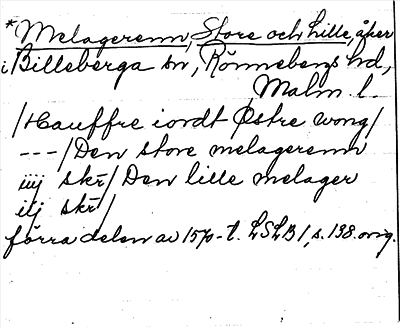 *Melagerenn, Store och Lille, åker
i Billeberga sn, Rönnebergs hd,
Malm. l.
/Hauffre iordt Østre wong/
---/Den store melagerenn
iiij skr̄/ Den lille melager
iij skr̄/
förra delen av 1570-t. LSLB 1, s. 138. orig.